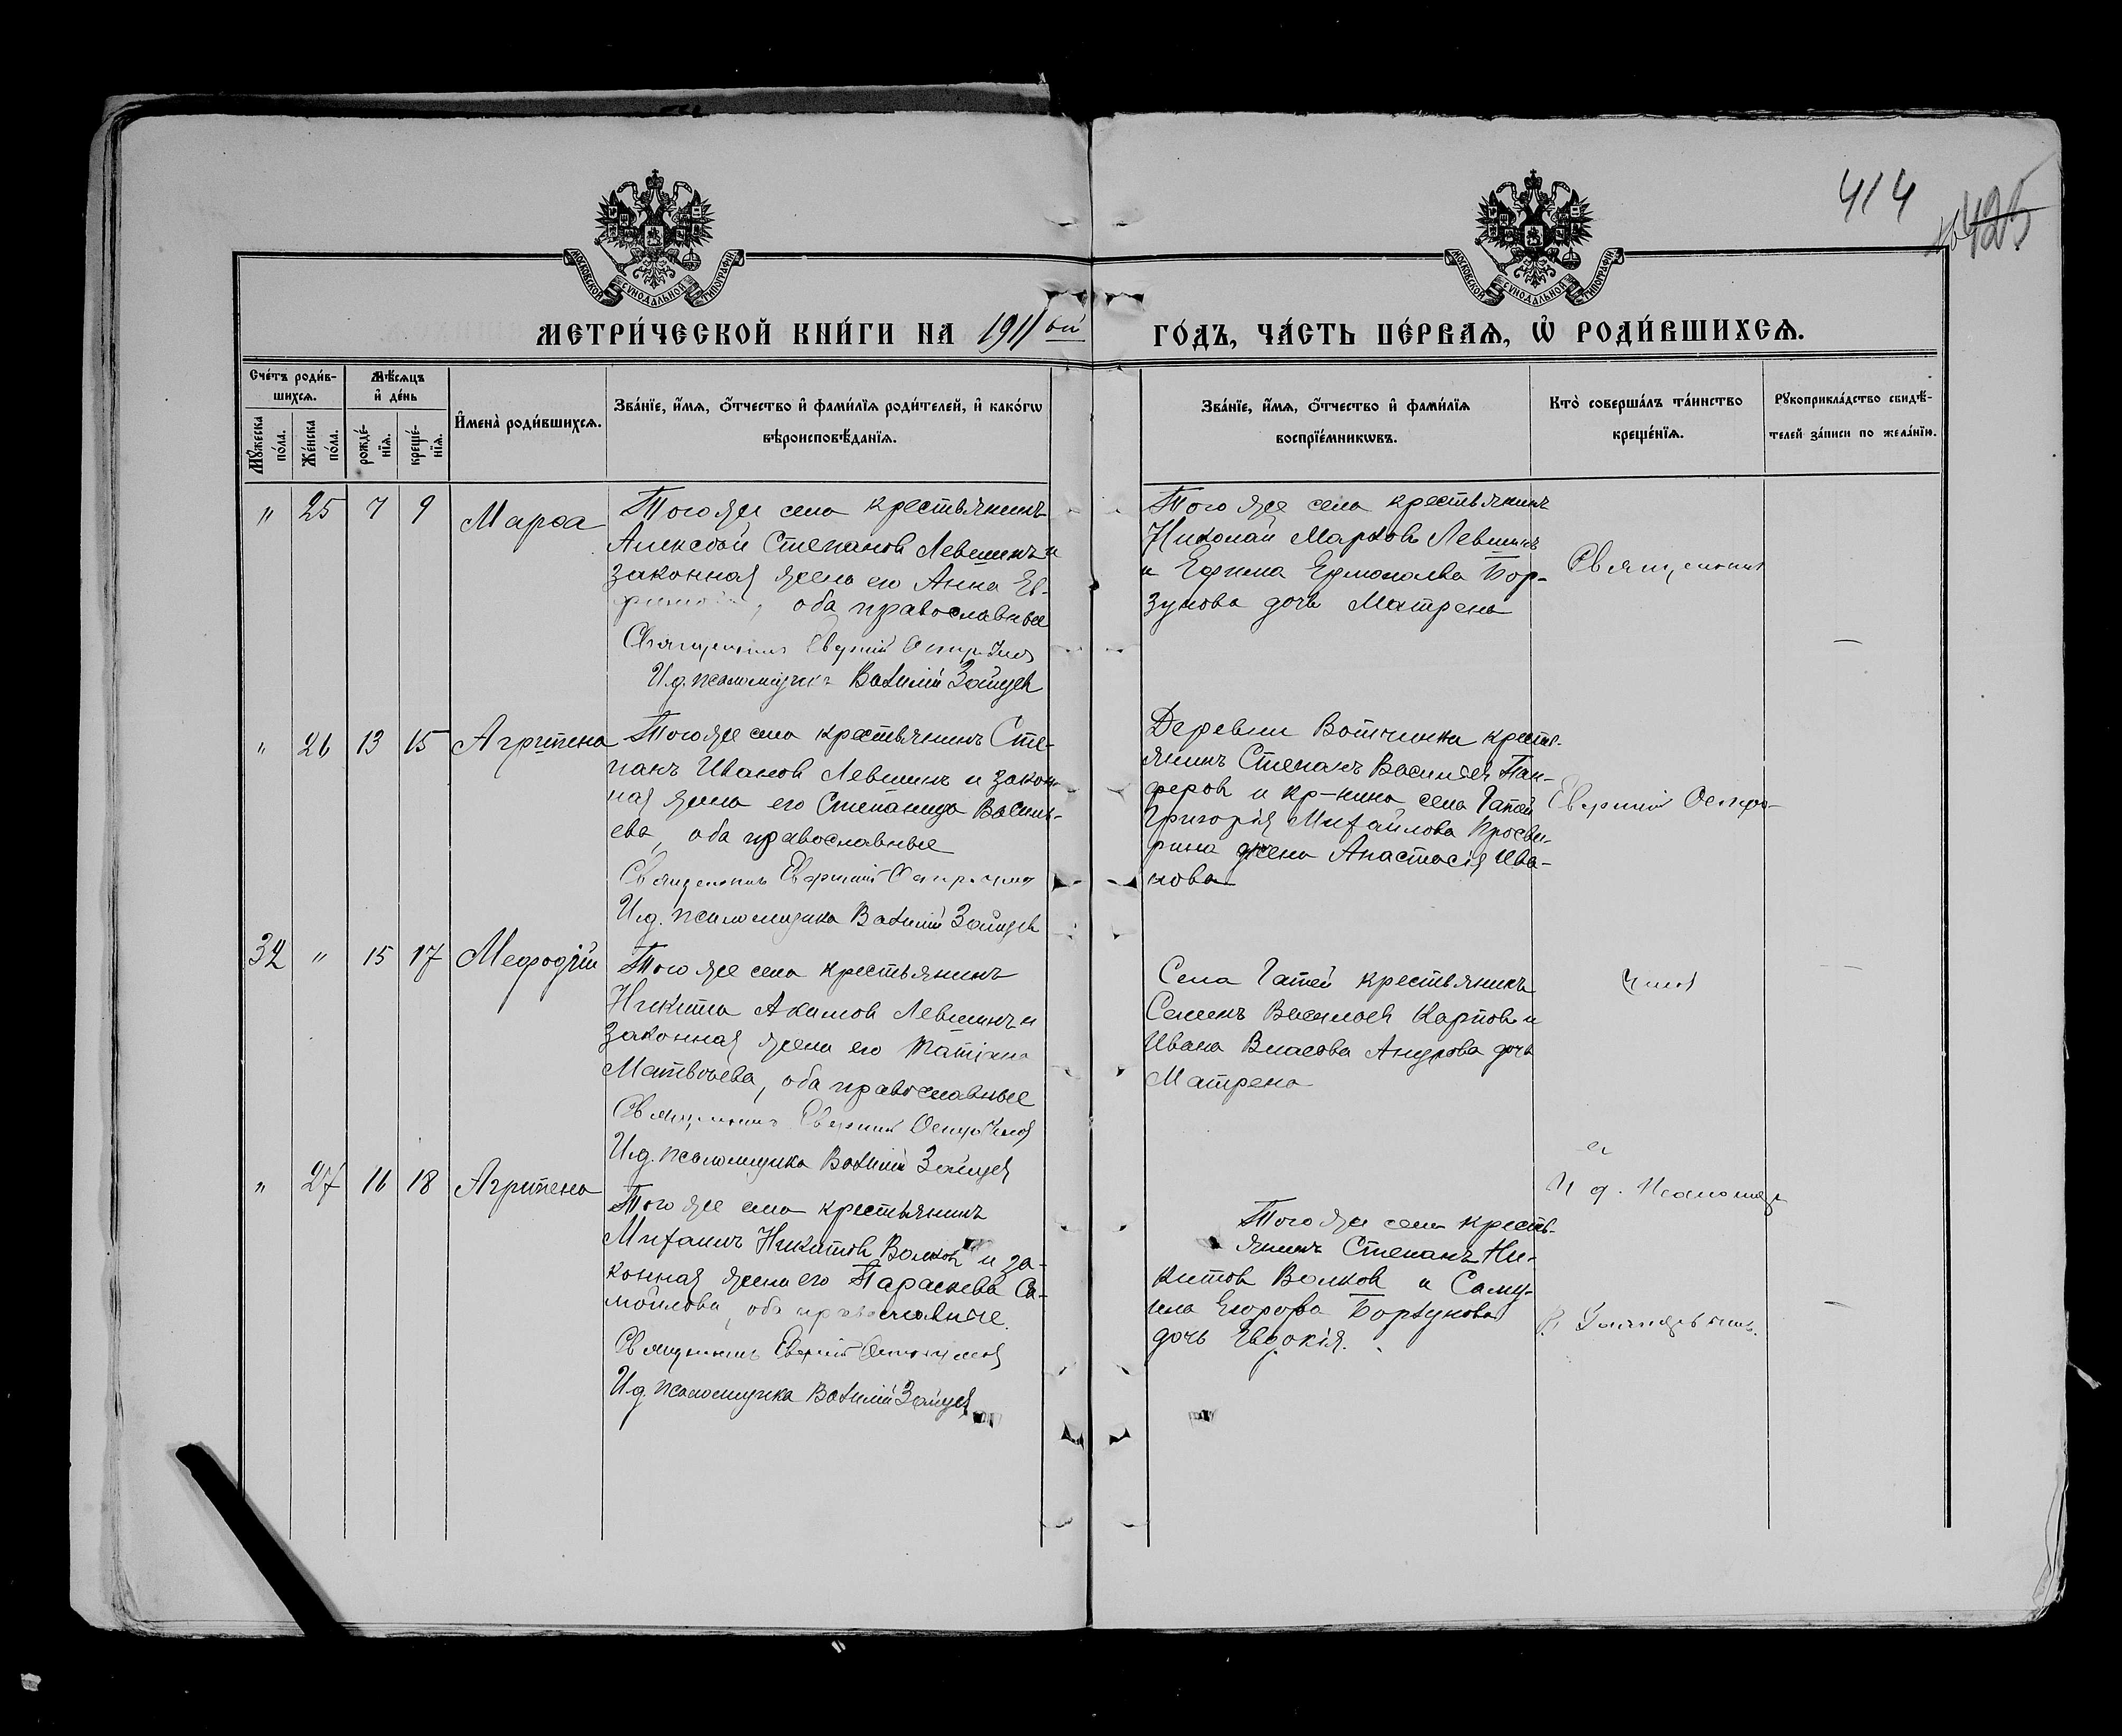 414
425
МОСКОВСКОЙ СѴНОДАЛЬНОЙ ТИПОГРАФІИ
МОСКОВСКОЙ СѴНОДАЛЬНОЙ ТИПОГРАФІИ
МЕТРИ́ЧЕСКОЙ КНИ́ГИ НА 1911 ый ГО́ДЪ, ЧА́СТЬ ПЕ́РВАѦ, Ѡ҆ РОДИ́ВШИХСѦ.
Сче́тъ роди́в-
шихсѧ.
Мꙋ́жеска по́ла.
Же́нска по́ла.
Мѣ́сѧцъ
и҆ де́нь
рожде́-
нїѧ.
креще́-
нїѧ.
И҆мена̀ роди́вшихсѧ.
Зва́нїе, и҆́мѧ, ѻ҆́тчество и҆ фами́лїѧ роди́телей, и҆ како́гѡ
вѣроисповѣ́данїѧ.
Зва́нїе, и҆́мѧ, ѻ҆́тчество и҆ фами́лїѧ
воспрїе́мникѡвъ.
Кто̀ соверша́лъ та́инство
креще́нїѧ.
Рꙋкоприкла́дство свидѣ́-
телей за́писи по жела́нїю.
" 25 7 9 Марѳа
Того же села крестьянинъ
Алексѣй Степановъ Левшинъ и
законная жена его Анна Ев-
оба православные
Священникъ Евгений
И.д. псаломщика Василій Зайцев
Того же села крестьянинъ
Николай Марковъ Левшинъ
и Ефима Ермолаева Бор-
зунова дочь Матрена
Священникъ
" 26 13 15 Агрипена
Того же села крестьянинъ Сте-
панъ Иванов Левшинъ и закон-
ная жена его Степанида Василь-
ева, оба православные
Священникъ Евгений
И.д. псаломщика Василій Зайцев
Деревни Вотчинки кресть-
янинъ Степанъ Васильев Пан-
феров и кр-нина села Гатей
Григорія Михайлова Просви-
рина жена Анастасія Ива-
нова
Евгений
32 " 15 17 Мефодій
Того же села крестьянинъ
Никита Акимов Левшинъ и
законная жена его Татіана
Матвѣева, оба православные
Священникъ Евгений
И.д. псаломщика Василій Зайцев
Села Гатей крестьянинъ
Семенъ Васильев Карпов и
Ивана Власова дочь
Матрена
" 27 16 18 Агрипена
Того же села крестьянинъ
Михаилъ Никитов Волков и за-
конная жена его Параскева Са-
мойлова, оба православные.
Священникъ Евгений
И.д. псаломщика Василій Зайцев
Того же села кресть-
янинъ Степанъ Ни-
китов Волков и Саму-
ила Егорова Борзунова
дочь Евдокія.
и
И д. Псаломщ